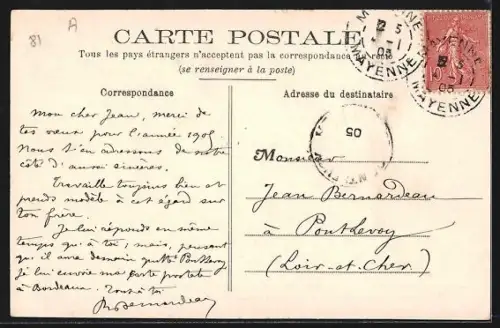 81
A
CARTE POSTALE
Tous les pays étrangers n'acceptent pas la correspondance au recto
(se renseigner à la poste)
Correspondance
Mon cher Jean, merci de
tes vœux pour l'année 1905.
Nous t'en adressons de notre
côté d'aussi sincères.
Travaille toujours bien et
prends modèle à cet égard sur
ton frère.
Je lui réponds en même
temps qu'à toi, mais, pensant
qu'il aura demain quitté Pontlevoy
je lui envoie ma carte postale
à Bordeaux. Tout à toi
Bernardeau
Adresse du destinataire
Monsieur
Jean Bernardeau
à Pontlevoy
(Loir-et-Cher)
MAYENNE
5
-1
05
MAYENNE
MAYENNE
5
-1
05
MAYENNE
10
05